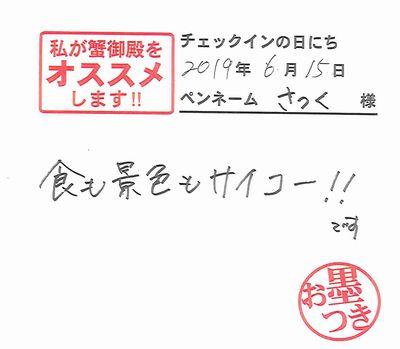 私が蟹御殿を
オススメ
します!!
チェックインの日にち
2019年 6月 15日
ペンネーム さっく 様
食も景色もサイコー!!
です
お墨つき